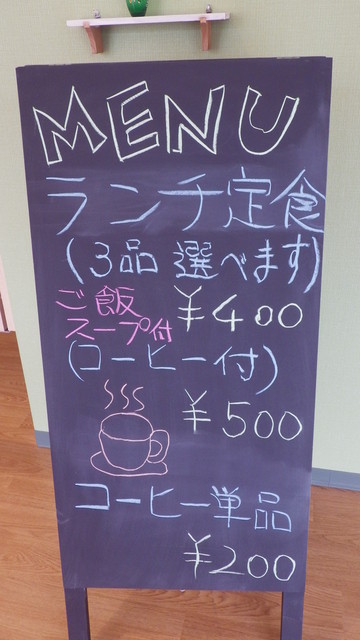 MENU
ランチ定食
(3品 選べます)
ご飯
スープ付
¥400
(コーヒー付)
¥500
コーヒー単品
¥200